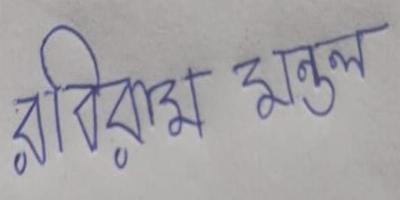 রবিরাম মন্ডল